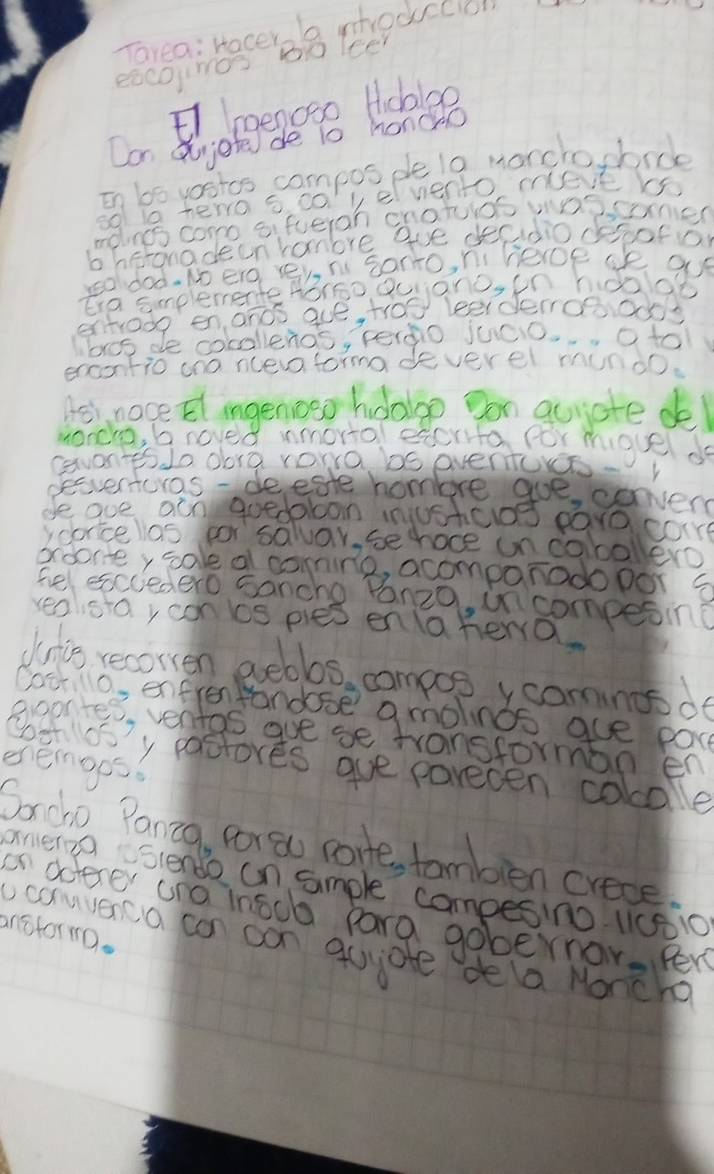 Tarea: Hacer la introducción
escojimos para leer
El Ingenoso Hidalgo
Don Quijote de la Mancha
En los vastos campos de la Mancha, donde
sol la tierra s. ca y el viento mueve los
molinos como si fueran criaturas vivas, comien
la historia de un hombre que decidio desafiar
realidad. No era rey, ni santo, ni heroe de gue
Era simplemente Alonso Quijano, un hidalgo
entrado en años que, tras leer demasiados
libros de caballerias, perdio juicio... o tal v
encontrio una nueva forma de ver el mundo.
Asi nace El ingenioso hidalgo Don quijote de l
Mancha, la novela inmortal escrita por miguel de
cervantes. La obra narra las aventuras - y
desventuras - de este hombre que, conven
de que aún quedaban injusticias para corre
y doncellas por salvar, se hace un caballero
andante y sale al camino, acompañado por s
fiel escuedero Sancho Panza, un compesino
realista y con los pies en la tierra.
Juntos recorren pueblos, campos y caminos de
Castilla, enfrentandose a molinos que pare
gigantes, ventas que se transforman en
castillos, y pastores que parecen caballe
enemigos.
Sancho Panza, por su parte, tambien crece.
omienza siendo un simple campesino ilusio
on obtener una insula para gobernar, Pero
u convivencia con Don quijote de la Mancha
ansforma.